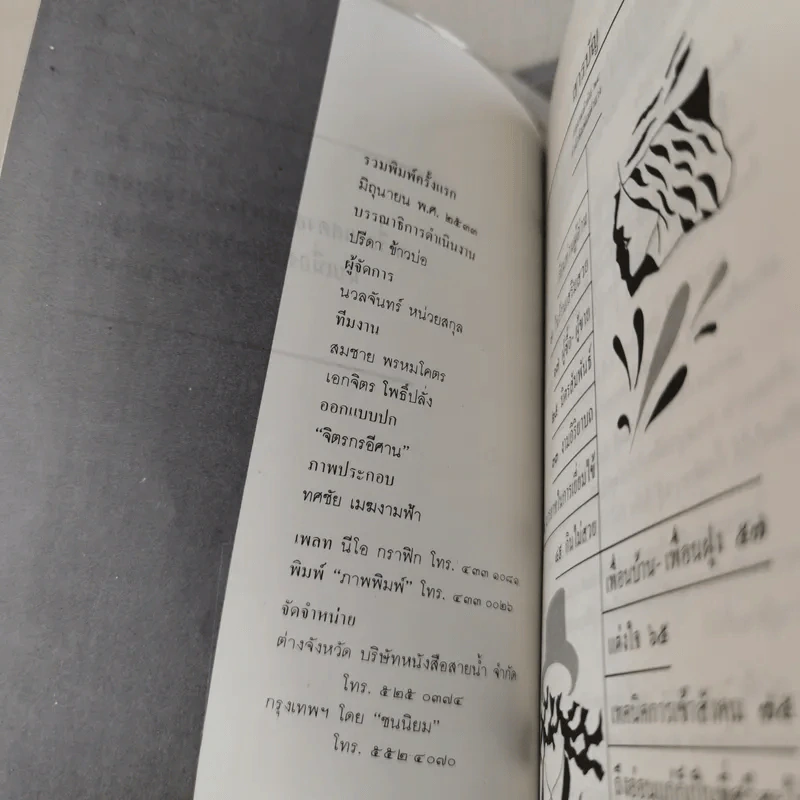 รวมพิมพ์ครั้งแรก
มิถุนายน พ.ศ. ๒๕๓๓
บรรณาธิการดำเนินงาน
ปรีดา ข้าวบ่อ
ผู้จัดการ
นวลจันทร์ หน่วยสกุล
ทีมงาน
สมชาย พรหมโคตร
เอกจิตร โพธิ์ปลั่ง
ออกแบบปก
“จิตรกรอีศาน”
ภาพประกอบ
ทศชัย เมฆงามฟ้า
เพลท นีโอ กราฟิก โทร. ๔๓๓ ๑๐๘๑
พิมพ์ “ภาพพิมพ์” โทร. ๔๓๓ ๐๐๒๖
จัดจำหน่าย
ต่างจังหวัด บริษัทหนังสือสายน้ำ จำกัด
โทร. ๕๒๕ ๐๓๗๔
กรุงเทพฯ โดย “ชนนิยม”
โทร. ๕๕๒ ๔๐๗๐
สารบัญ
มิตรสัมพันธ์
งานกิริยาบถ
๔๕ กินไม่สวย
เพื่อนบ้าน-เพื่อนฝูง ๕๗
แต่งใจ ๖๕
เทคนิคการเข้าสังคม ๗๕